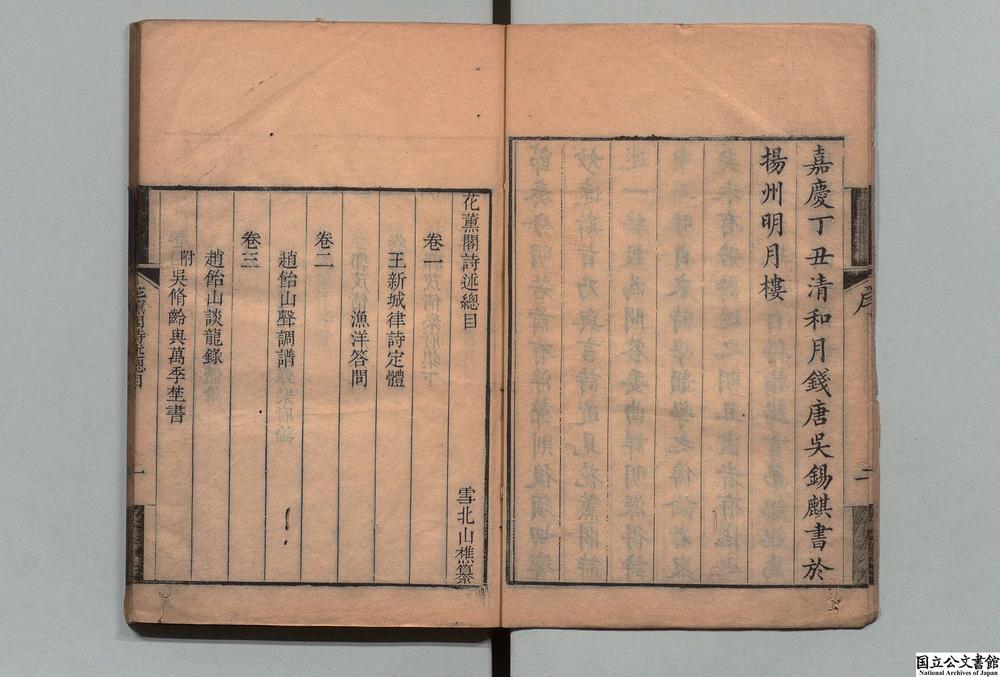 嘉慶丁丑清和月錢唐吳錫麒書於
揚州明月樓
序
二
花薰閣詩述總目
雪北山樵纂
卷一
王新城律詩定體
漁洋答問
卷二
趙飴山聲調譜
卷三
趙飴山談龍錄
附吳脩齡與萬季埜書
花薰閣詩述總目
一
国立公文書館
National Archives of Japan